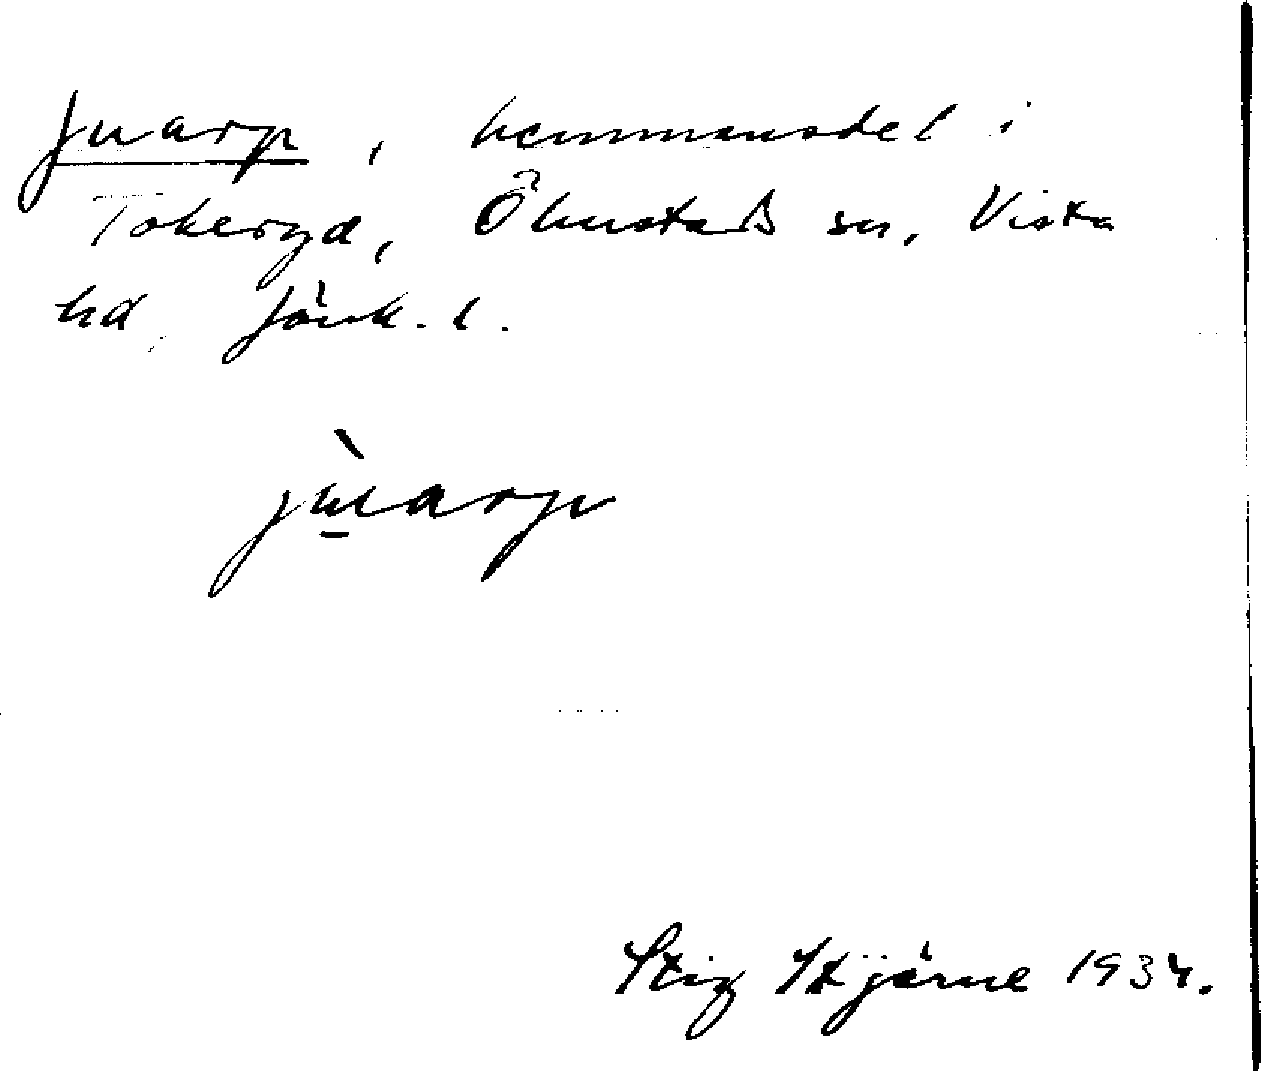 Juarp, hemmansdel i
Tokeryd, Ölmstads sn, Vista
hd, Jönk. l.
jùarp
Stig Stjärne 1934.